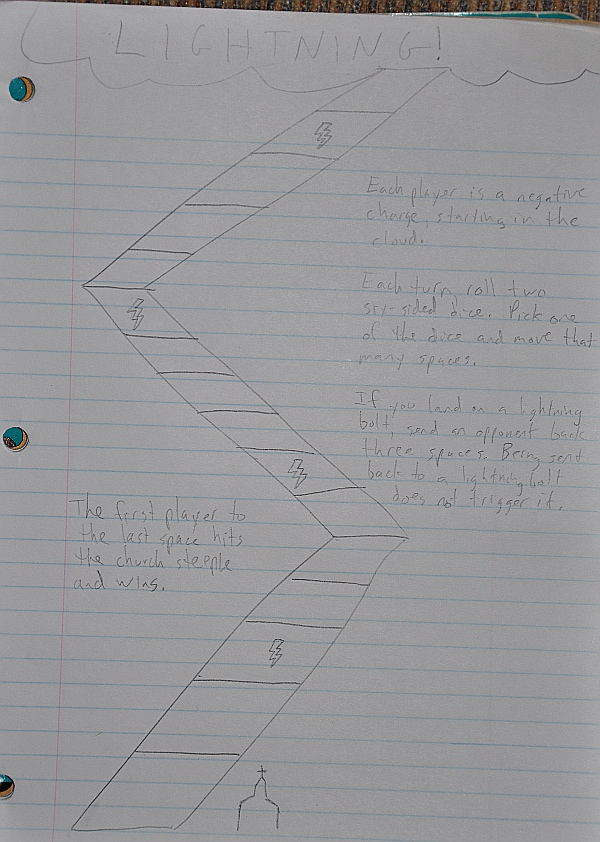 LIGHTNING!
Each player is a negative
charge, starting in the
cloud.
Each turn roll two
six-sided dice. Pick one
of the dice and move that
many spaces.
If you land on a lightning
bolt, send an opponent back
three spaces. Being sent
back to a lightning bolt
does not trigger it.
The first player to
the last space hits
the church steeple
and wins.